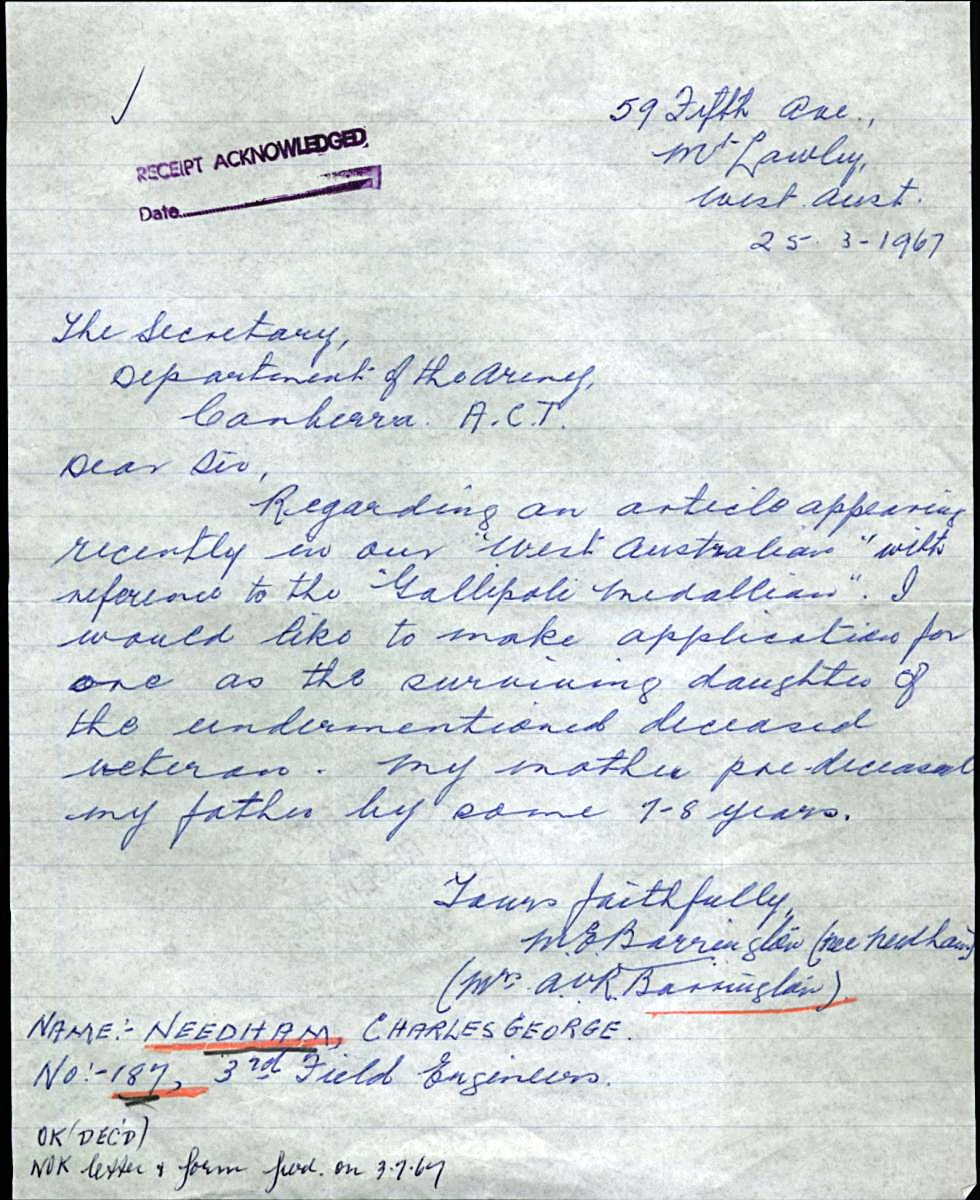 59 Fifth Ave.,
Mt Lawley,
West. Aust.
25-3-1967
RECEIPT ACKNOWLEDGED
Date
The Secretary,
Department of the Army,
Canberra. A.C.T.
Dear Sir,
Regarding an article appearing
recently in our "West Australian" with
reference to the "Gallipoli Medallian". I
would like to make application for
one as the surviving daughter of
the undermentioned deceased
veteran. My mother pre-deceased
my father by some 7-8 years.
Yours faithfully,
M.E. Barrington (nee Needham)
(Mrs. A.V.R. Barrington)
NAME:- NEEDHAM, CHARLES GEORGE.
No:- 187, 3rd Field Engineers.
OK (DEC'D)
NOK letter & form fwd. on 3.7.67